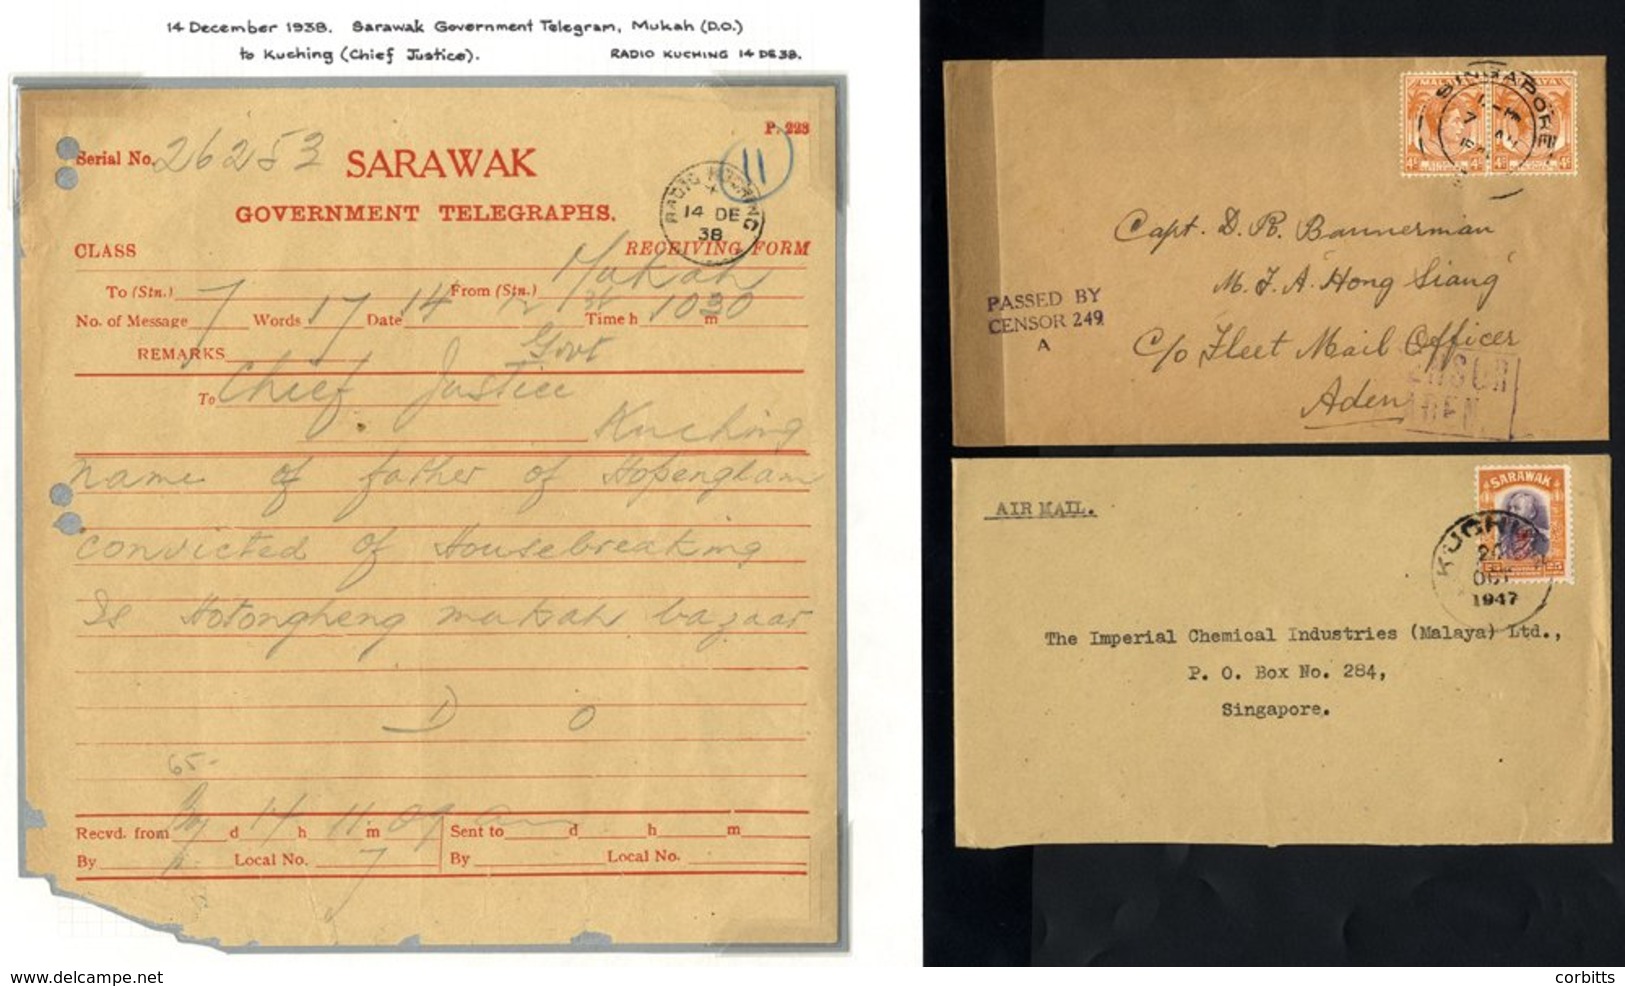 14 December 1938. Sarawak Government Telegram, Mukah (D.O.)
to Kuching (Chief Justice). RADIO KUCHING 14 DE 38.
P. 223
Serial No. 26253
11
SARAWAK
GOVERNMENT TELEGRAPHS.
RADIO KUCHING
14 DE
38
CLASS RECEIVING FORM
To (Stn.) From (Stn.) Mukah
No. of Message 7 Words 17 Date 14 12 38 Time h 1030 m
REMARKS Govt
To Chief Justice
Kuching
name of father of Hopenglam
convicted of Housebreaking
Is Hotongheng mukah bazaar
D O
65-
Recvd. from d 14 h 11 m 09 am Sent to d h m
By Local No. 7 By Local No.
SINGAPORE
MALAYA
4c 4c 4c 4c
Capt. D. R. Bannerman
M.F.A. 'Hong Siang'
c/o Fleet Mail Officer
Aden
PASSED BY
CENSOR 249
A
CENSOR
ADEN
AIR MAIL.
SARAWAK
KUCHING
20
OCT
1947
The Imperial Chemical Industries (Malaya) Ltd.,
P. O. Box No. 284,
Singapore.
www.delcampe.net corbitts